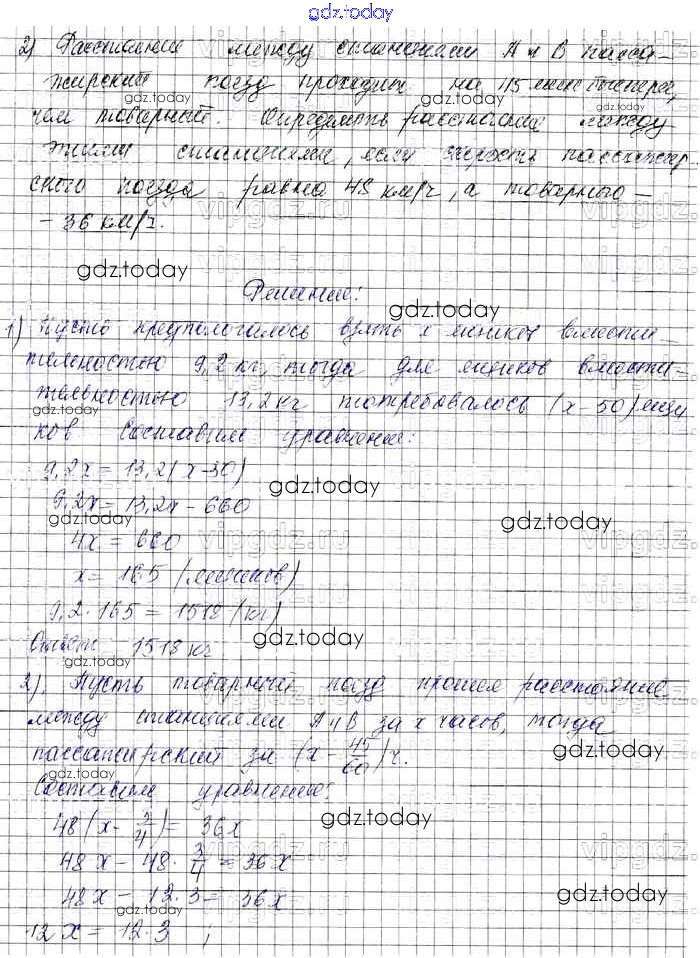 gdz.today
2) Расстояние между станциями А и В пасса-
жирский поезд проходит на 45 мин быстрее,
чем товарный. Определить расстояние между
этими станциями, если скорость пассажир
ского поезда равна 48 км/ч, а товарного -
- 36 км/ч.
gdz.today
Решение:
gdz.today
1) Пусть предполагалось взять x ящиков вмести-
тельностью 9,2 кг, тогда для ящиков вмести-
тельностью 13,2 кг потребовалось (x-50) ящи
ков Составим уравнение:
9,2x = 13,2(x-50)
9,2x = 13,2x - 660
gdz.today
4x = 660
x = 165 (ящиков)
9,2 · 165 = 1518 (кг)
Ответ 1518 кг
gdz.today
2). Пусть товарный поезд прошел расстояние
между станциями А и В за x часов, тогда
пассажирский за (x - 45/60) ч.
gdz.today
Составим уравнение:
48(x - 3/4) = 36x
gdz.today
48x - 48 · 3/4 = 36x
48x - 12·3 = 36x
gdz.today
12x = 12·3 ;